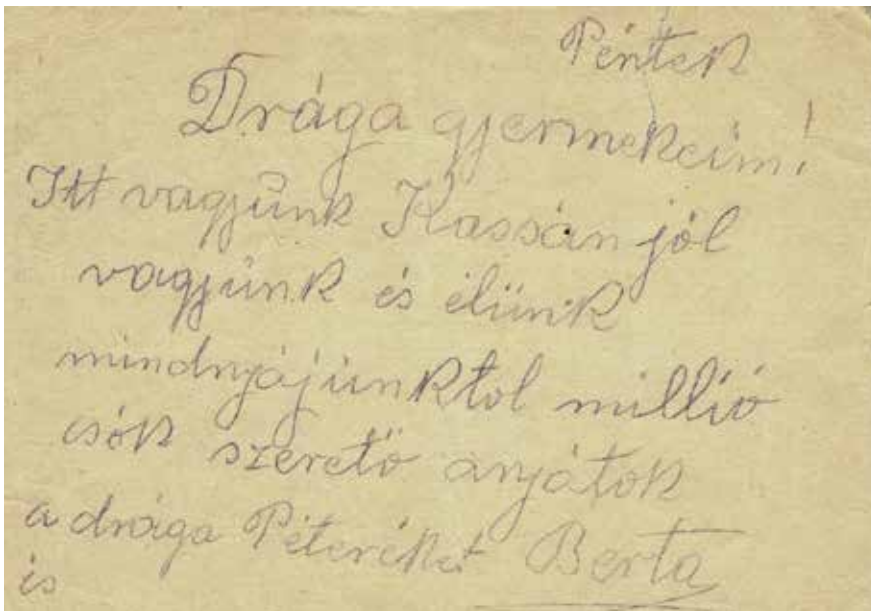 Péntek
Drága gjermekeim!
Itt vagjünk Kassán jól
vagjünk és élünk
mindnyájünktol millió
csók szerető anjátok
a drága Péteréket Berta
is